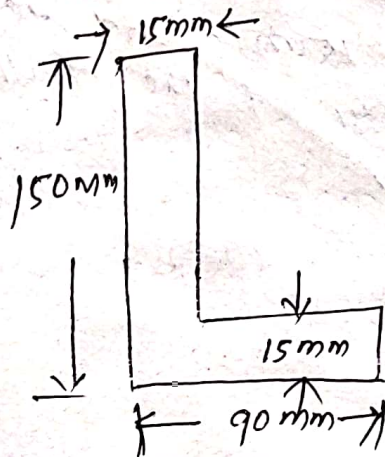 15mm
150mm
15mm
90mm